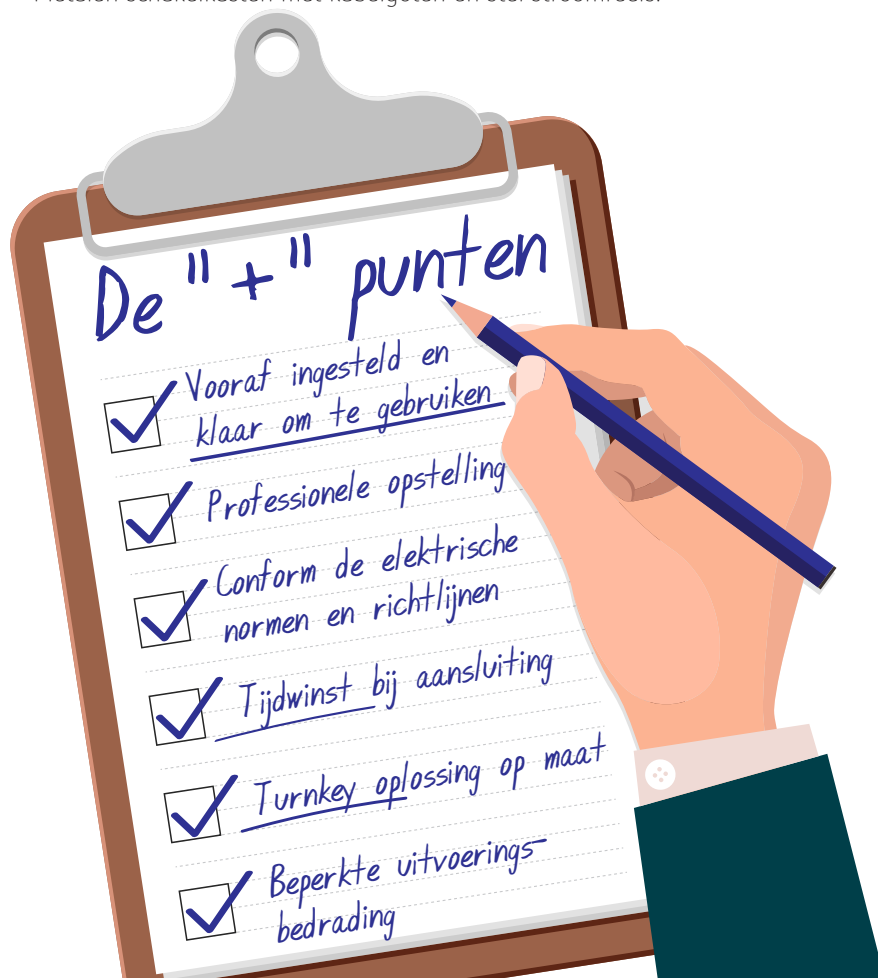 De "+" punten
Vooraf ingesteld en
klaar om te gebruiken
Professionele opstelling
Conform de elektrische
normen en richtlijnen
Tijdwinst bij aansluiting
Turnkey oplossing op maat
Beperkte uitvoerings-
bedrading